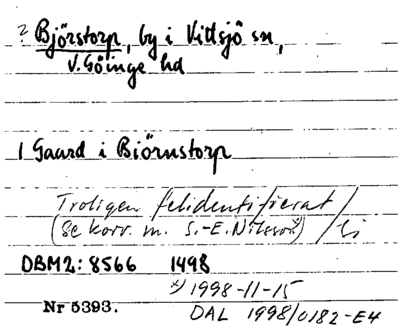 ? Björstorp, by i Vittsjö sn,
V. Göinge hd
1 Gaard i Biörnstorp
Troligen felidentifierat
(se korr. m. S.-E. Nilsson*)
DBM2: 8566 1498
*) 1998-11-15
Nr 5393.
DAL 1998/0182-E4